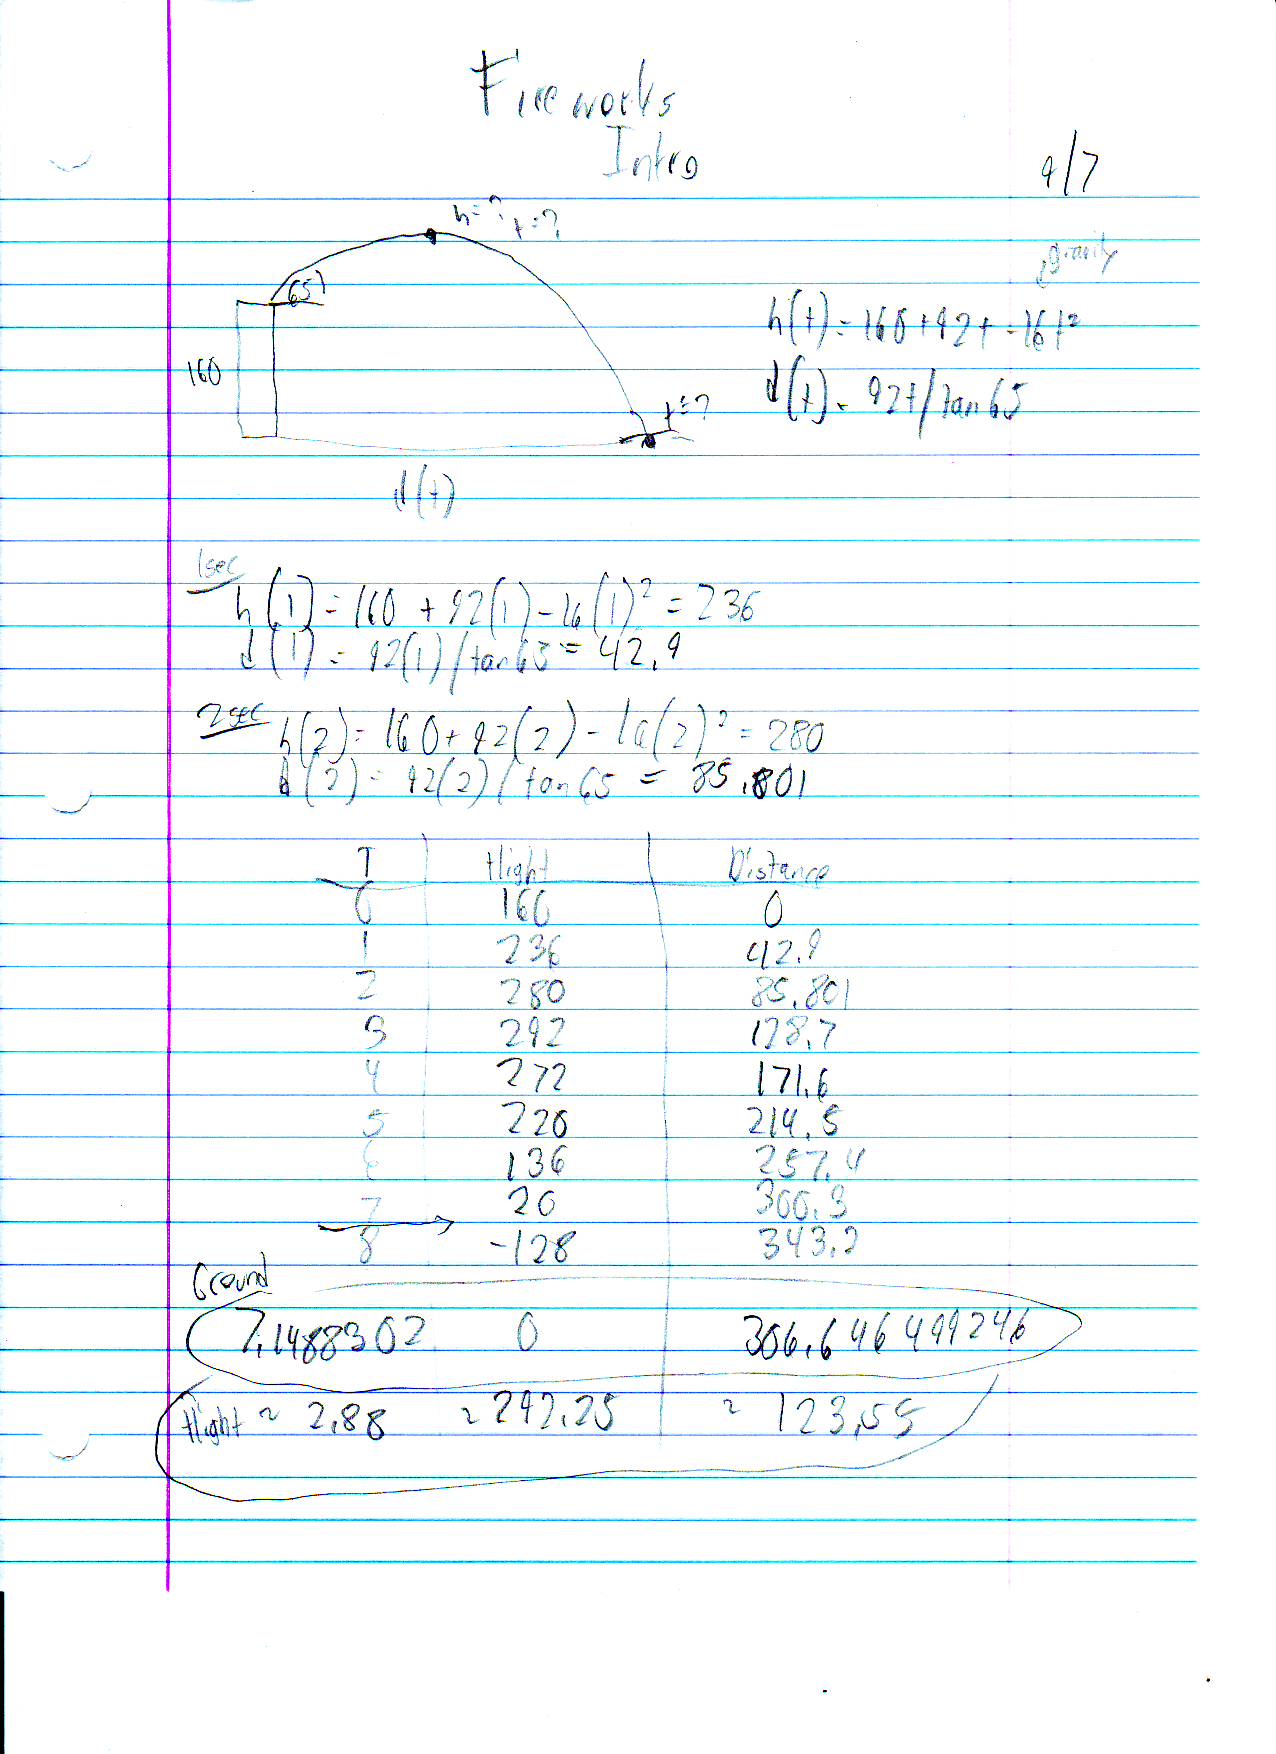 Fireworks
Intro
9/7
h=? t=?
gravity
65°
h(t) = 160 + 92t - 16t²
160
d(t) = 92t/tan 65
t=?
d(t)
1sec
h(1) = 160 + 92(1) - 16(1)² = 236
d(1) = 92(1)/tan65 = 42.9
2sec
h(2) = 160 + 92(2) - 16(2)² = 280
d(2) = 92(2)/tan 65 = 85.801
T Hight Distance
0 160 0
1 236 42.9
2 280 85.801
3 292 128.7
4 272 171.6
5 220 214.5
6 136 257.4
7 20 300.3
8 -128 343.2
Ground
7.1488302 0 306.646499246
Hight ~ 2.88 ~ 292.25 ~ 123.55